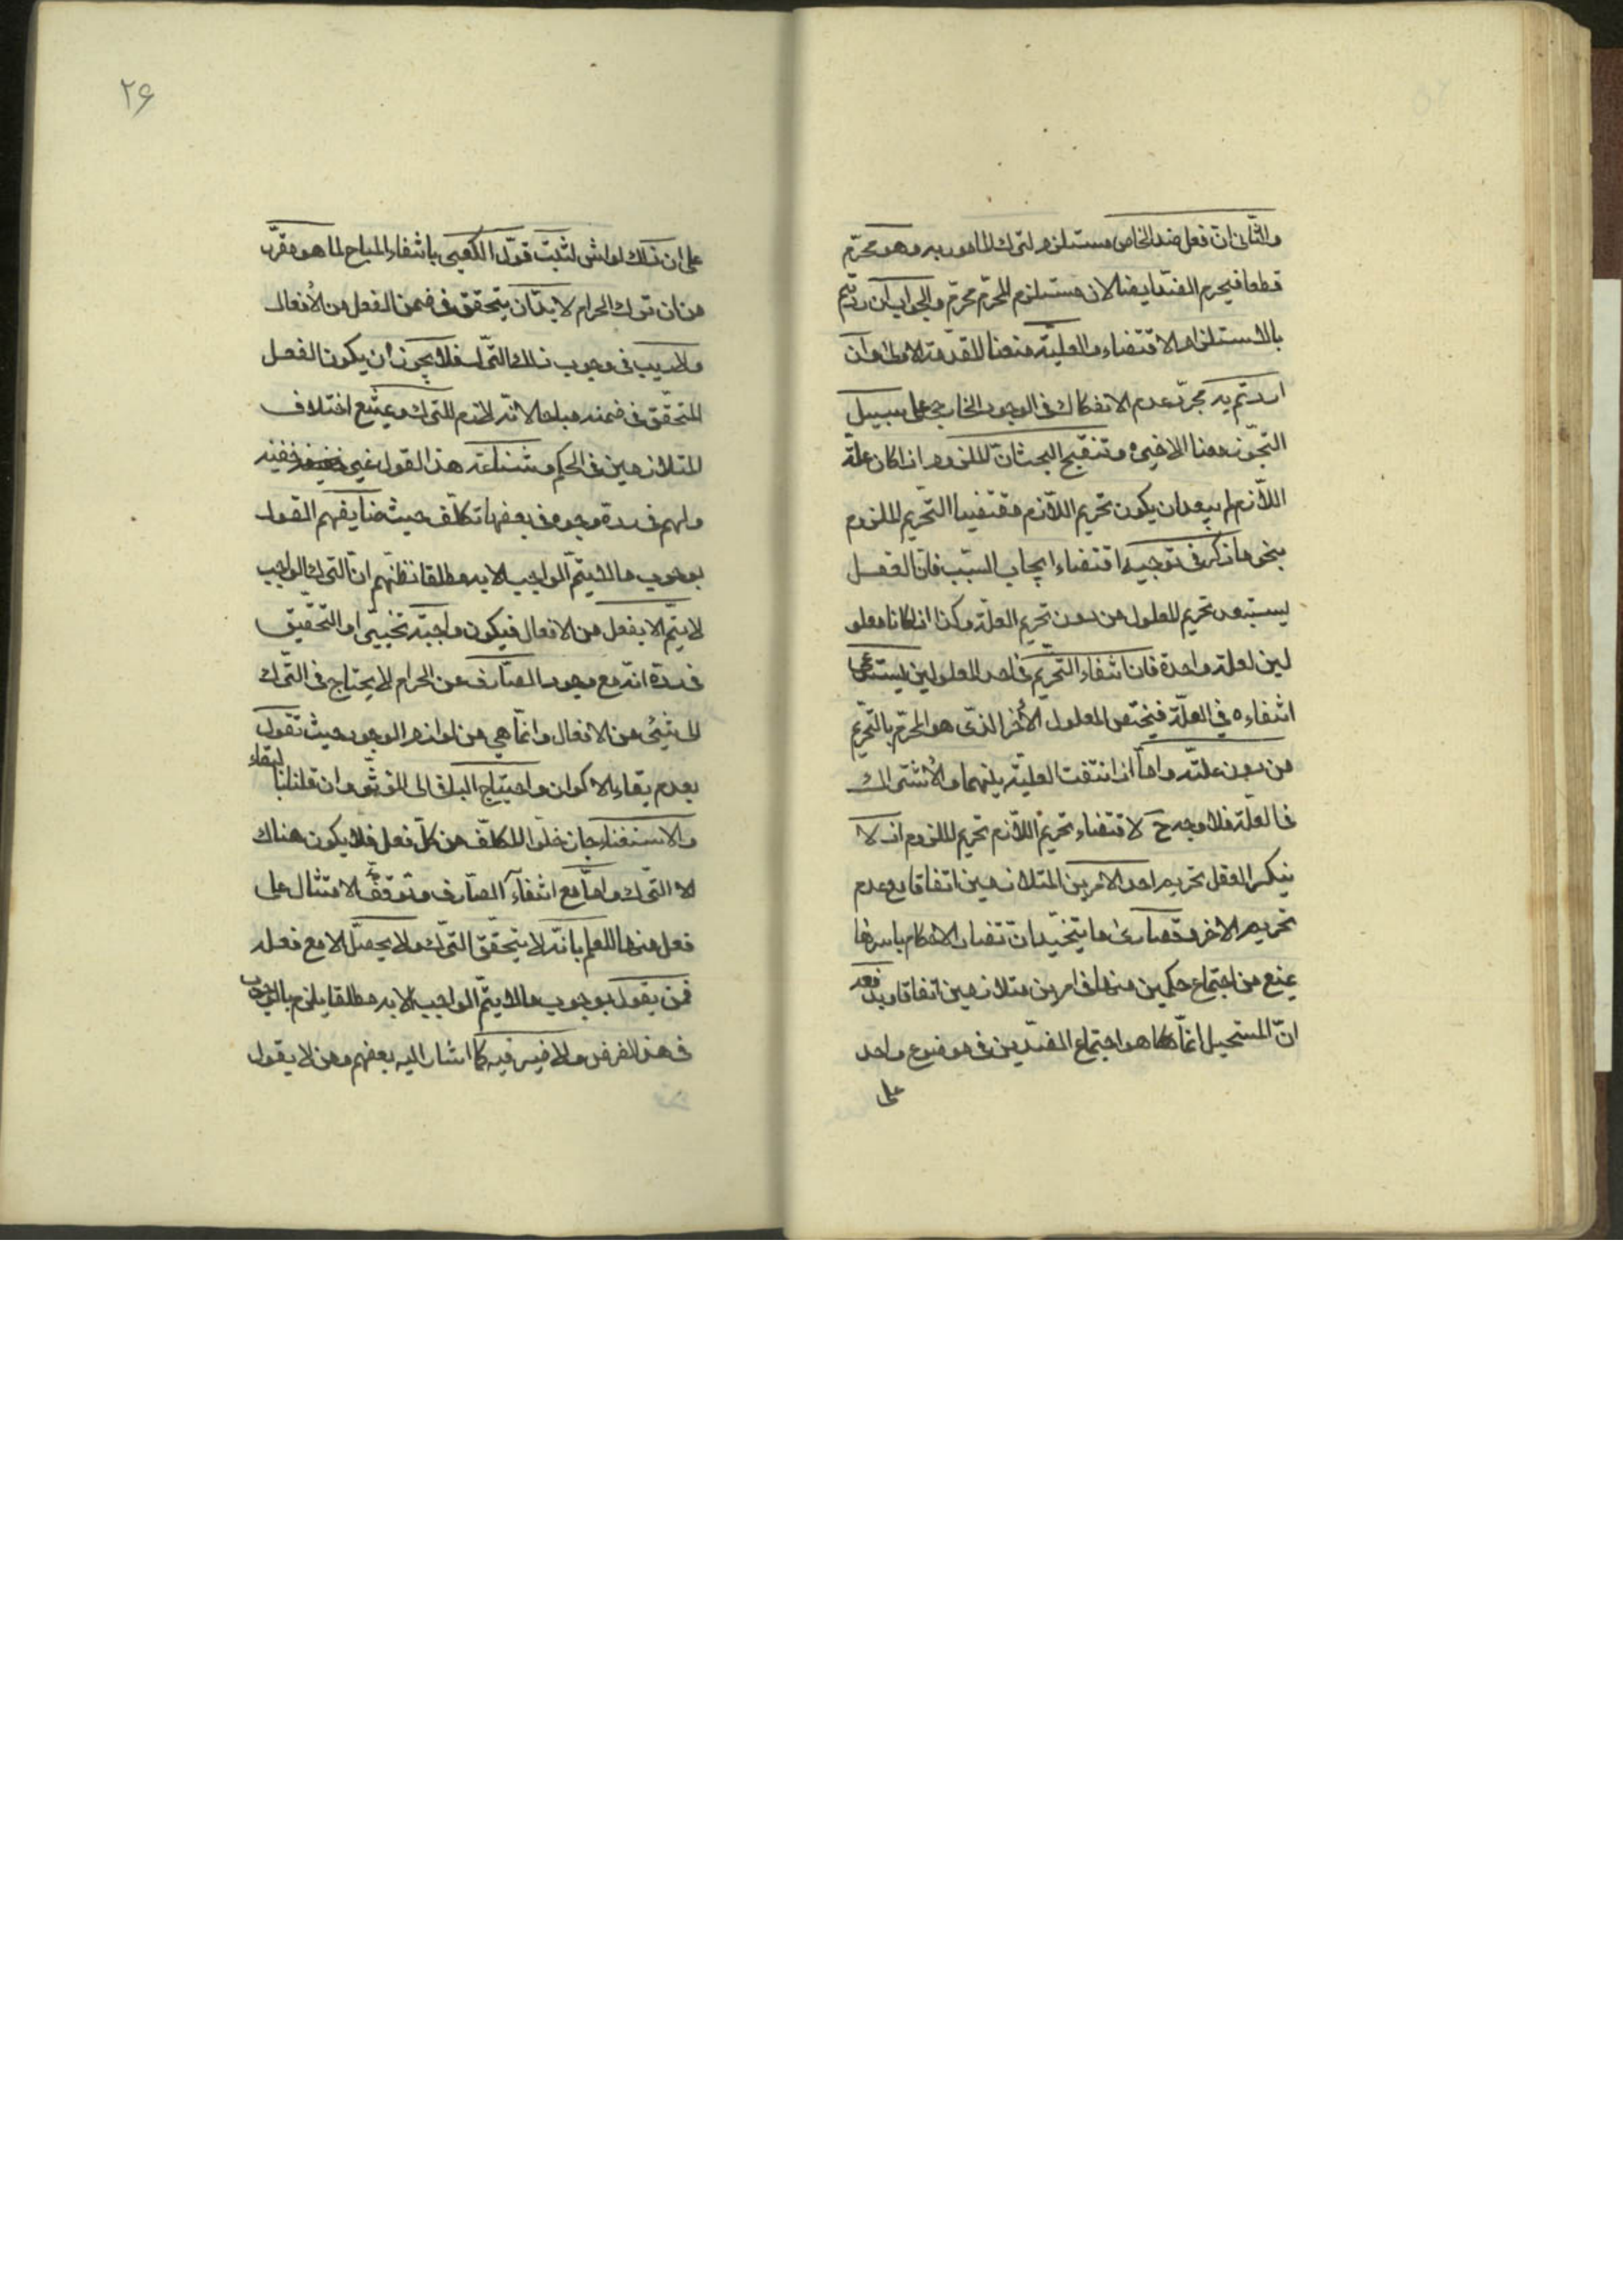 والثانى ان فعل ضد الخاص مستلزم لترك المامور به وهو محرّم
قطعا فيحرم الضدّ ايضا لان مستلزم المحرّم محرّم والجواب ان اردتم
بالاستلزام الاقتضاء والعليّة منعنا المقدمة الاولى وان
اردتم به مجرّد عدم الانفكاك فى الوجود الخارجى على سبيل
التجوّز منعنا الاخيرة وتنقيح البحث انّ الملزوم اذا كان علة
اللّازم لم يبعد ان يكون تحريم اللّازم مقتضيا التحريم الملزوم
بنحو ما ذكر فى توجيه اقتضاء ايجاب السّبب فانّ العقل
يستبعد تحريم المعلول من دون تحريم العلّة وكذا اذا كانا معلو
لين لعلة واحدة فان انتفاء التحريم فى احد المعلولين يستدعى
انتفاءه فى العلّة فيختص المعلول الأخر الذى هو المحرّم بالتّحريم
من دون علته واما اذا انتفت العليّة بينهما والأشتراك
فى العلّة فلا وجه ح لاقتضاء تحريم اللّازم تحريم الملزوم اذ لا
ينكر العقل تحريم احد الامرين المتلازمين اتفاقا مع عدم
تحريم الاخر وقصارى ما يتخيّل ان تضاد الاحكام باسرها
يمنع من اجتماع حكمين منها فى امرين متلازمين اتفاقا ويدفعه
انّ المستحيل انّما هو اجتماع الضدّين فى موضوع واحد
على
۲۶
على ان ذلك لو اثر لثبت قول الكعبى بانتفاء المباح لما هو مقرّر
من ان ترك الحرام لا بدّ ان يتحقق فى ضمن الفعل من الأفعال
ولا ريب فى وجوب ذلك التّرك فلا يجوز ان يكون الفعل
المتحقّق فى ضمنه مباحا لانّه لازم للترك ويمتنع اختلاف
المتلازمين فى الحكم وشناعة هذا القول غير خفيه
ولهم فى ردّه وجوه فى بعضها تكلّف حيث ضايقهم القول
بوجوب ما لا يتمّ الواجب الا به مطلقا لظنهم انّ الترك الواجب
لا يتمّ الا بفعل من الافعال فيكون واجبة تخييرا والتّحقيق
فى ردّه انّه مع وجود الصّارف عن الحرام لا يحتاج فى التّرك
الى شيئ من الافعال وانّما هى من لوازم الوجود حيث نقول
بعدم بقاء الاكوان واحتياج الباقى الى المؤثّر وان قلنا بالبقاء
والاستغناء جاز خلوّ المكلّف من كلّ فعل فلا يكون هناك
الا التّرك واما مع انتفاء الصّارف وتوقّف الامتثال على
فعل منها للعلم بانّه لا يتحقّق التّرك ولا يحصّل الا مع فعله
فمن يقول بوجوب ما لا يتمّ الواجب الا به مطلقا يلتزم بالوجوب
فى هذا الفرض ولا ضير فيه كما اشار اليه بعضهم ومن لا يقول